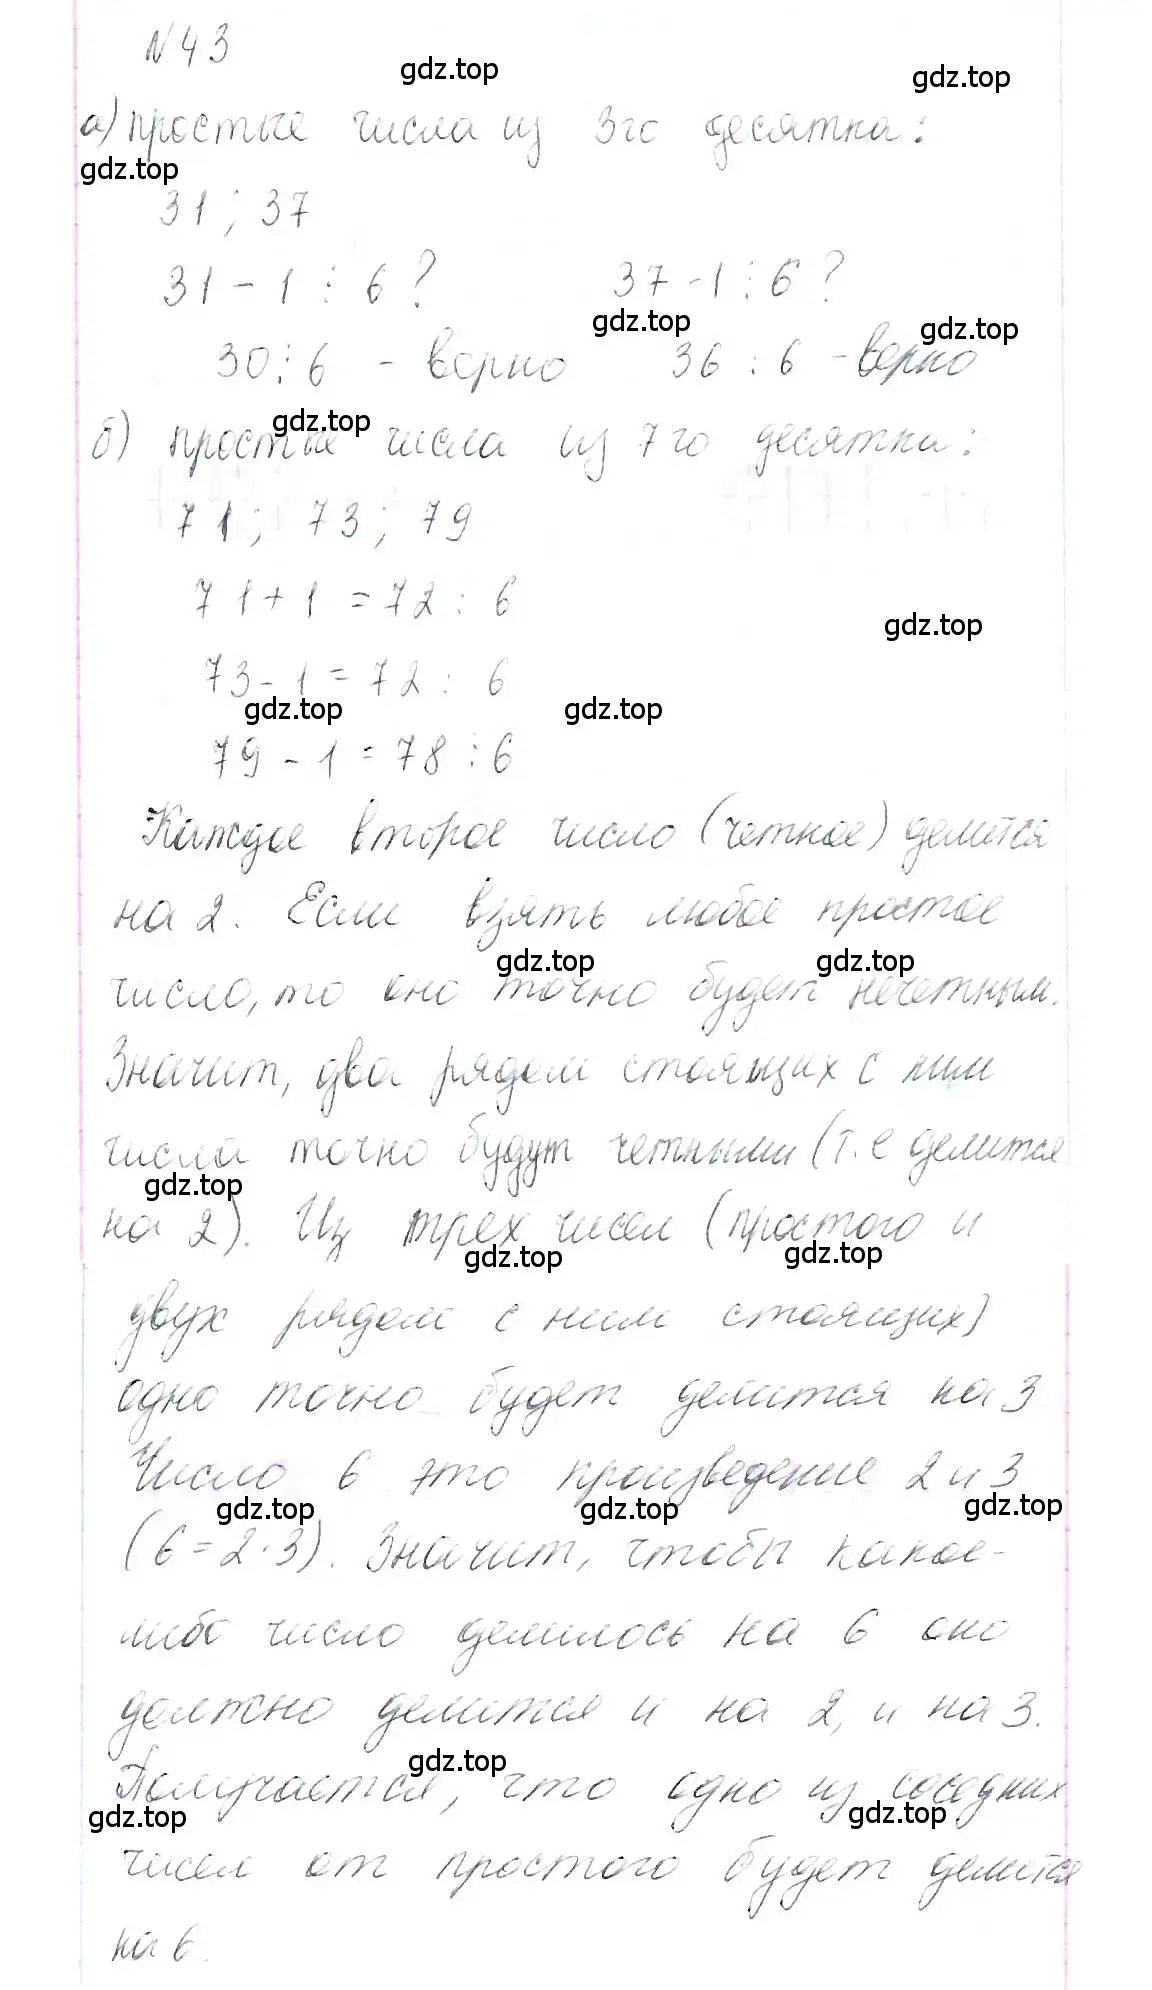 №43
gdz.top gdz.top
а) простые числа из 3го десятка:
gdz.top
31 ; 37
31 - 1 ⋮ 6 ? 37 - 1 ⋮ 6 ?
gdz.top gdz.top
30 ⋮ 6 - верно 36 ⋮ 6 - верно
gdz.top
б) простые числа из 7го десятка:
71 ; 73 ; 79
71 + 1 = 72 ⋮ 6
gdz.top
73 - 1 = 72 ⋮ 6
gdz.top gdz.top
79 - 1 = 78 ⋮ 6
Каждое второе число (четное) делится
на 2. Если взять любое простое
gdz.top gdz.top
число, то оно точно будет нечетным.
Значит, два рядом стоящих с ним
числа точно будут четными (т.е делится
gdz.top
на 2). Из трех чисел (простого и
gdz.top gdz.top
двух рядом с ним стоящих)
одно точно будет делится на 3
Число 6 это произведение 2 и 3
gdz.top gdz.top
(6 = 2 · 3). Значит, чтобы какое-
либо число делилось на 6 оно
должно делится и на 2, и на 3.
gdz.top
Получается, что одно из соседних
gdz.top gdz.top
чисел от простого будет делится
на 6.